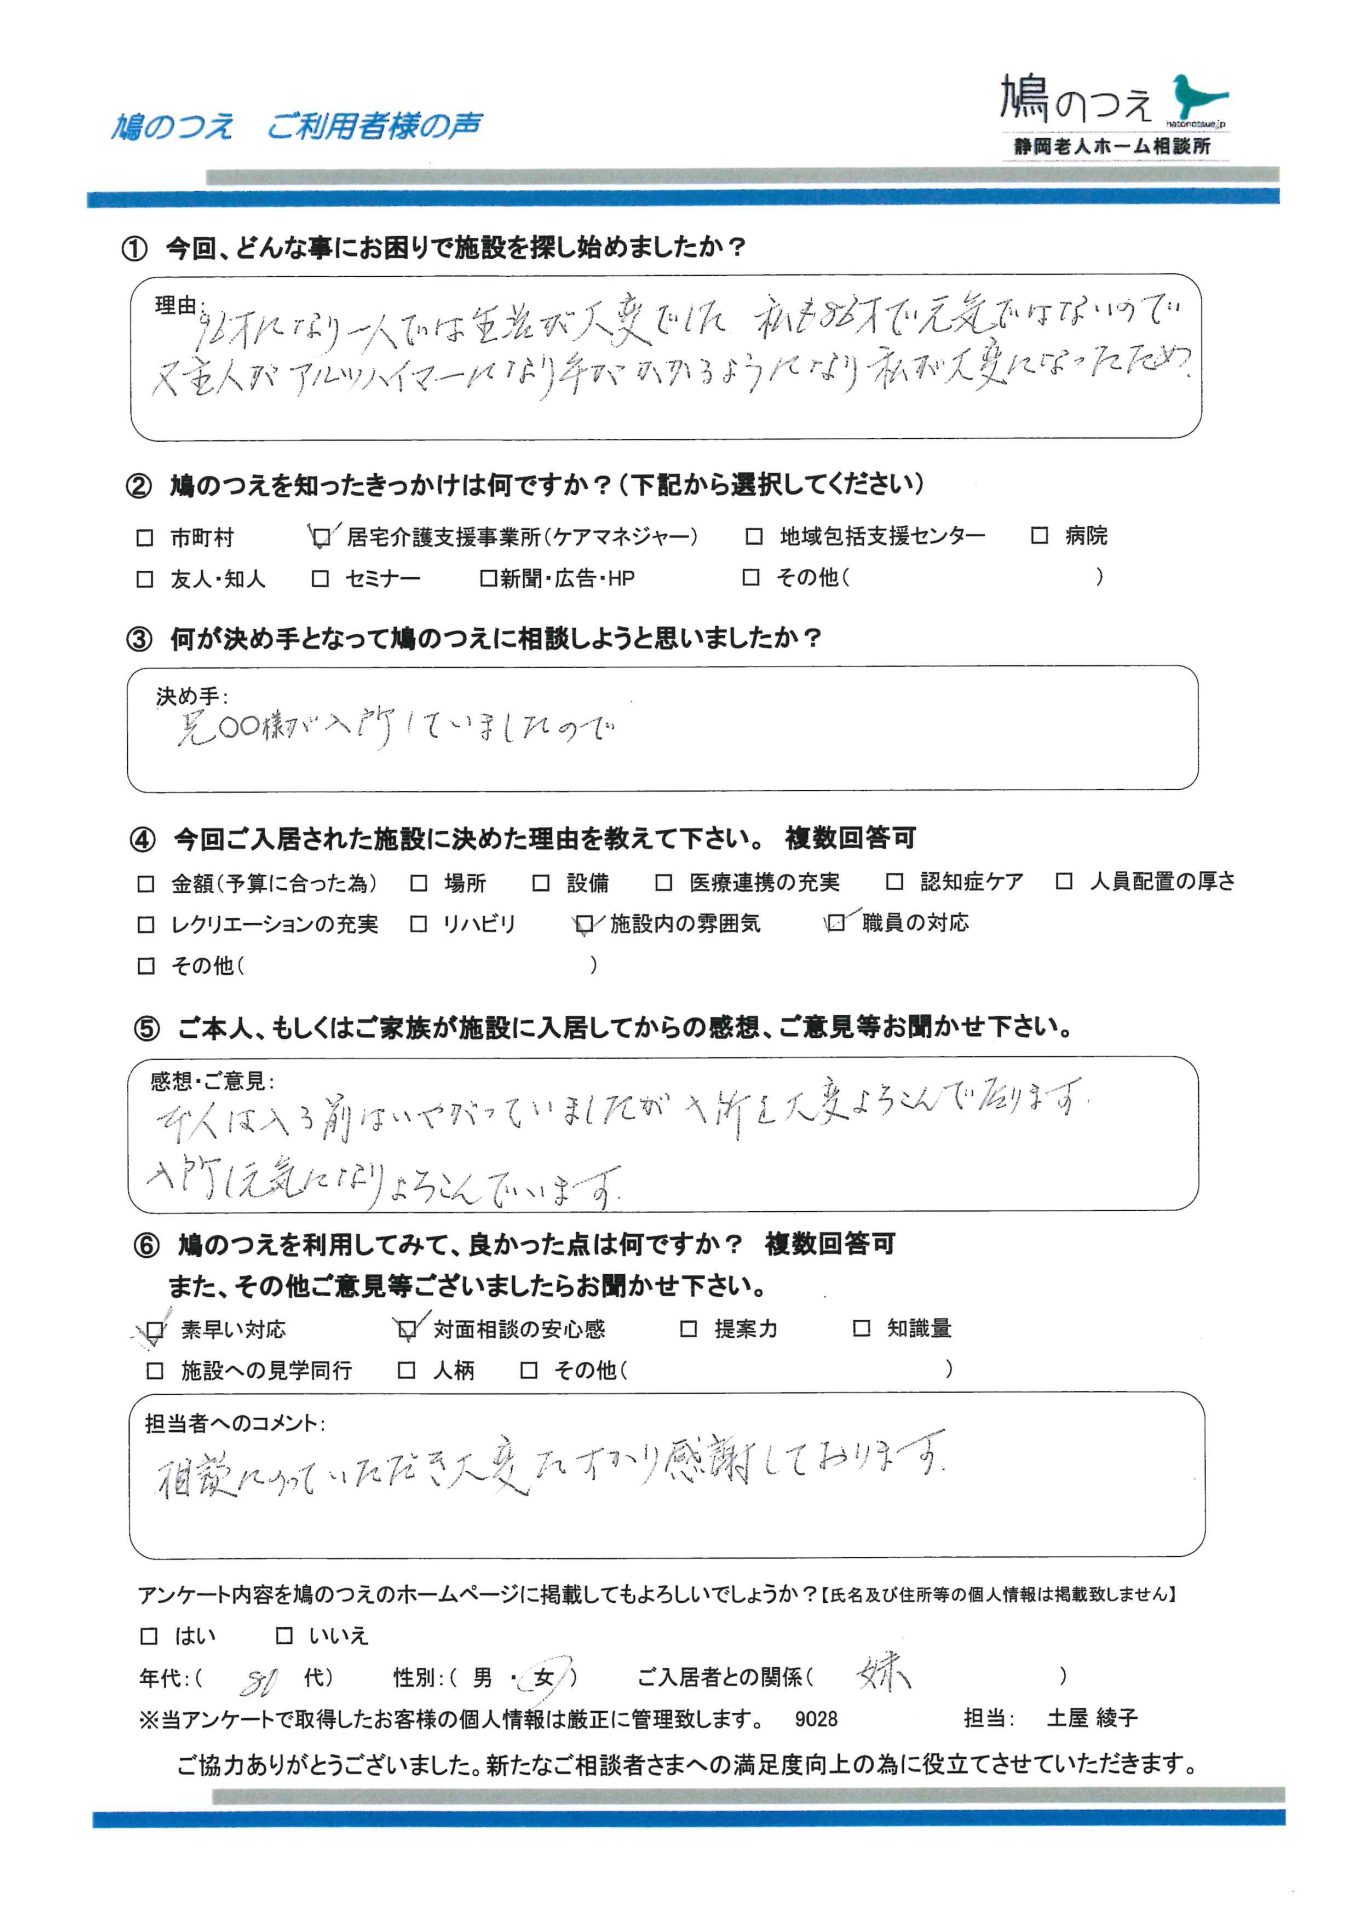 鳩のつえ ご利用者様の声
鳩のつえ
hatonotsue.jp
静岡老人ホーム相談所
① 今回、どんな事にお困りで施設を探し始めましたか？
理由:
96才になり一人では生活が大変でした 私も86才で元気ではないので
又主人がアルツハイマーになり手がかかるようになり私が大変になったため.
② 鳩のつえを知ったきっかけは何ですか？（下記から選択してください）
□ 市町村 ☑ 居宅介護支援事業所（ケアマネジャー） □ 地域包括支援センター □ 病院
□ 友人・知人 □ セミナー □新聞・広告・HP □ その他（ ）
③ 何が決め手となって鳩のつえに相談しようと思いましたか？
決め手:
兄〇〇様が入所していましたので
④ 今回ご入居された施設に決めた理由を教えて下さい。 複数回答可
□ 金額（予算に合った為） □ 場所 □ 設備 □ 医療連携の充実 □ 認知症ケア □ 人員配置の厚さ
□ レクリエーションの充実 □ リハビリ ☑ 施設内の雰囲気 ☑ 職員の対応
□ その他（ ）
⑤ ご本人、もしくはご家族が施設に入居してからの感想、ご意見等お聞かせ下さい。
感想・ご意見:
本人は入る前はいやがっていましたが 入所を大変よろこんで居ります.
入所し元気になりよろこんでいます.
⑥ 鳩のつえを利用してみて、良かった点は何ですか？ 複数回答可
また、その他ご意見等ございましたらお聞かせ下さい。
☑ 素早い対応 ☑ 対面相談の安心感 □ 提案力 □ 知識量
□ 施設への見学同行 □ 人柄 □ その他（ ）
担当者へのコメント:
相談にのっていただき大変たすかり感謝しております.
アンケート内容を鳩のつえのホームページに掲載してもよろしいでしょうか？【氏名及び住所等の個人情報は掲載致しません】
□ はい □ いいえ
年代:（ 80 代） 性別:（ 男 ・ 女 ） ご入居者との関係（ 妹 ）
※当アンケートで取得したお客様の個人情報は厳正に管理致します。 9028 担当: 土屋 綾子
ご協力ありがとうございました。新たなご相談者さまへの満足度向上の為に役立てさせていただきます。